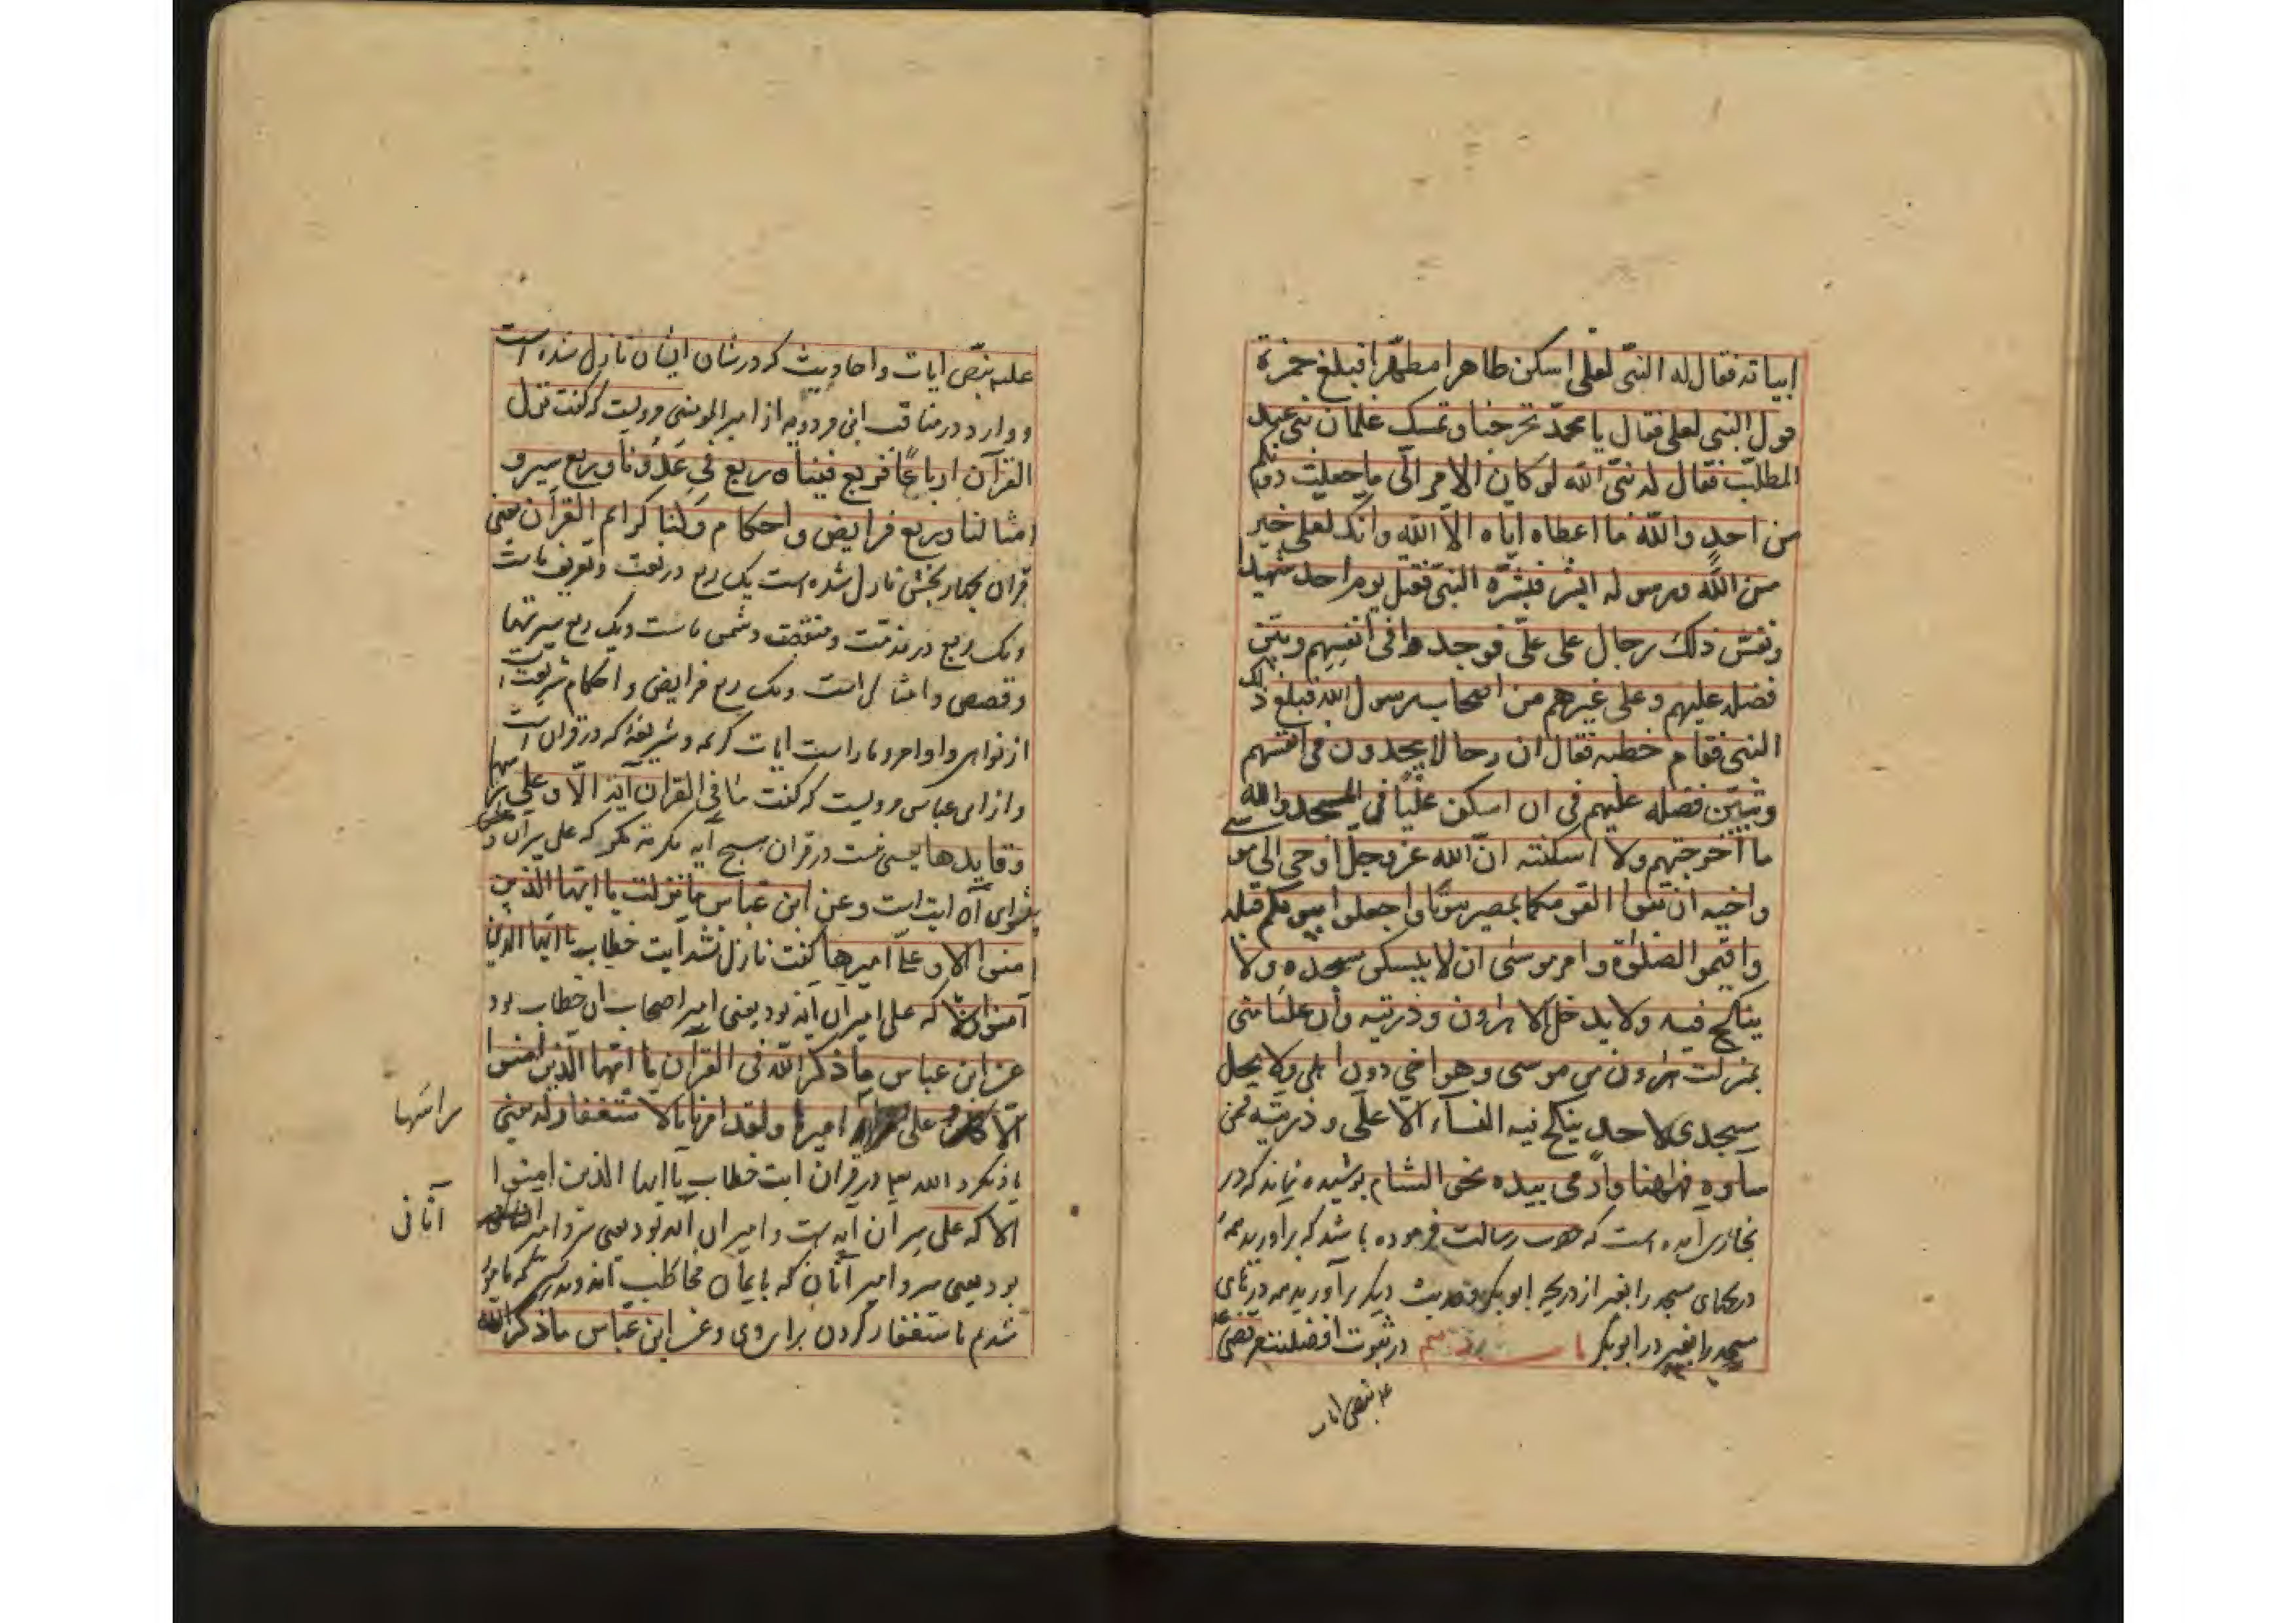 ابیاته فقال له النبی لعلی اسکن طاهرا مطهّرا فبلغ حمزة
قول النبی لعلی فقال یا محمّد تخرجنا و تمسک غلمان بنی عبد
المطلّب فقال له نبیّ الله لو کان الامر الیّ ما جعلت دونکم
من احدٍ والله ما اعطاه ایاه الّا الله وانک لعلی خیر
من الله ورسوله ابشر فبشّره النبیّ فقتل یوم احد شهیدا
ونفس ذلک رجال علی علیّ فوجدوا فی انفسهم وتبیّن
فضله علیهم وعلی غیرهم من اصحاب رسول الله فبلغ ذلک
النبی فقام خطبه فقال ان رجالا یجدون فی انفسهم
وتبیّن فضله علیهم فی ان اسکن علیّا فی المسجد والله
ما اخرجتهم ولا اسکنته انّ الله عزوجلّ اوحی الی موسی
واخیه ان تبوّا لقومکما بمصر بیوتا واجعلوا بیوتکم قبلة
واقیمو الصلوة وامر موسی ان لا یسکن مسجده ولا
ینکح فیه ولا یدخل الا هرون وذریته وأن علیّا منّی
بمنزلت هرون من موسی وهو اخی دون اهلی ولا یحل
مسجدی لاحدٍ ینکح فیه النسآء الا علی وذریته فمن
سآءه فههنا واومی بیده نحو الشام پوشیده نماند که در
بخاری آمده است که حضرت رسالت فرموده باشد که برآورید همهٔ
دریچهای مسجد را بغیر از دریچه ابوبکر وحدیث دیکر برآورید همه درهای
مسجد را بغیر در ابوبکر باب در ثبوت افضلیت مرتضی
بنصّ ایات
علیه بنصّ ایات واحادیث که در شان ایشان نازل شده است
ووارد در مناقب ابن مردویه از امیر المومنین مرویست که کفت نزل
القرآن ارباعًا فربع فینا وربع فی عَدُوّنا وربع سیر و
امثال لنا وربع فرایض واحکام ولنا کرایم القرآن یعنی
قران بچهار بخش نازل شده است یک ربع در نعت وتعریف ماست
ویک ربع در مذمّت ومنقصت دشمن ماست ویک ربع سیرتها
وقصص وامثال است ویک ربع فرایض واحکام شریعت است
از نواهی واوامر وماراست ایات کریمه وشریفهٔ که در قران است
واز ابن عباس مرویست که کفت ما فی القران آیة الّا وعلی راسها
وقایدها یعنی نیست در قران هیچ آیه مکرمه مکر که علی سر آن و
پیشوای آن ایت است وعن ابن عباس ما نزلت یا ایها الذین
امنوا الا وعلیّ امیرها کفت نازل نشد ایت خطاب یا ایها الذین
آمنوا الا که علی امیر ان آیه بود یعنی امیر اصحاب ان خطاب بود
عن ابن عباس ما ذکر الله فی القرآن یا ایها الذین امنوا
الّا وعلی امیرها ولقد امرنا بالاستغفار له یعنی
یاد نکرد الله تع در قران ایت خطاب یا ایها الذین امنوا
الا که علی سر ان آیه است وامیر ان آیه بود یعنی سر وامیر
بود یعنی سر وامیر آنان که بایمان مخاطب اند که مامور
شدیم باستغفار کردن برای وی وعن ابن عباس ما ذکر الله
راسها
آنانی